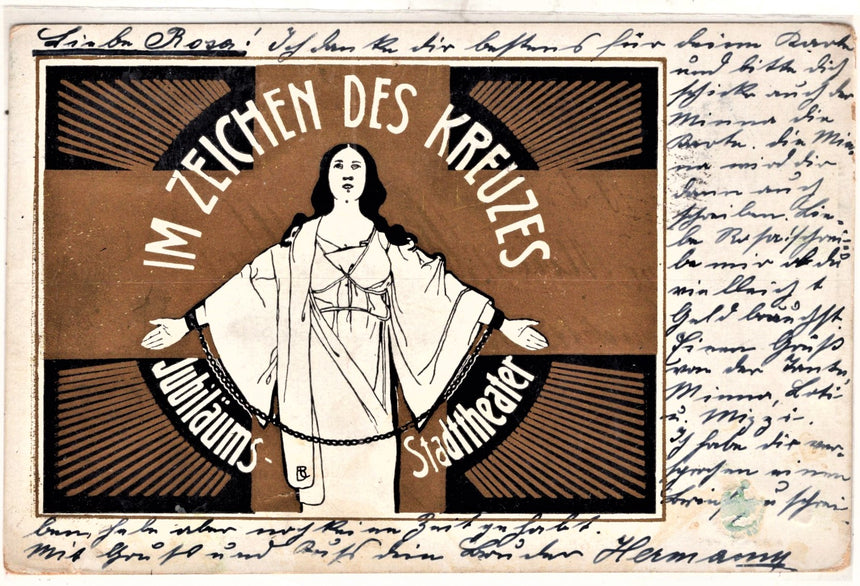 Liebe Rosa! Ich danke dir bestens für deine Karte
und bitte dich
schicke auch der
Minna die
Karte. die Min-
na wird dir
dann auch
schreiben. Lie-
be Rosa! schrei-
be mir ob du
vielleicht
Geld brauchst.
Einen Gruß
von der Tante,
Minna, Loti
u. Mizzi.
Ich habe dir ver-
sprochen einen
zu schrei-
ben, habe aber noch keine Zeit gehabt.
Mit Gruß und Kuß dein Bruder Hermann
IM ZEICHEN DES KREUZES
Jubiläums-
Stadttheater